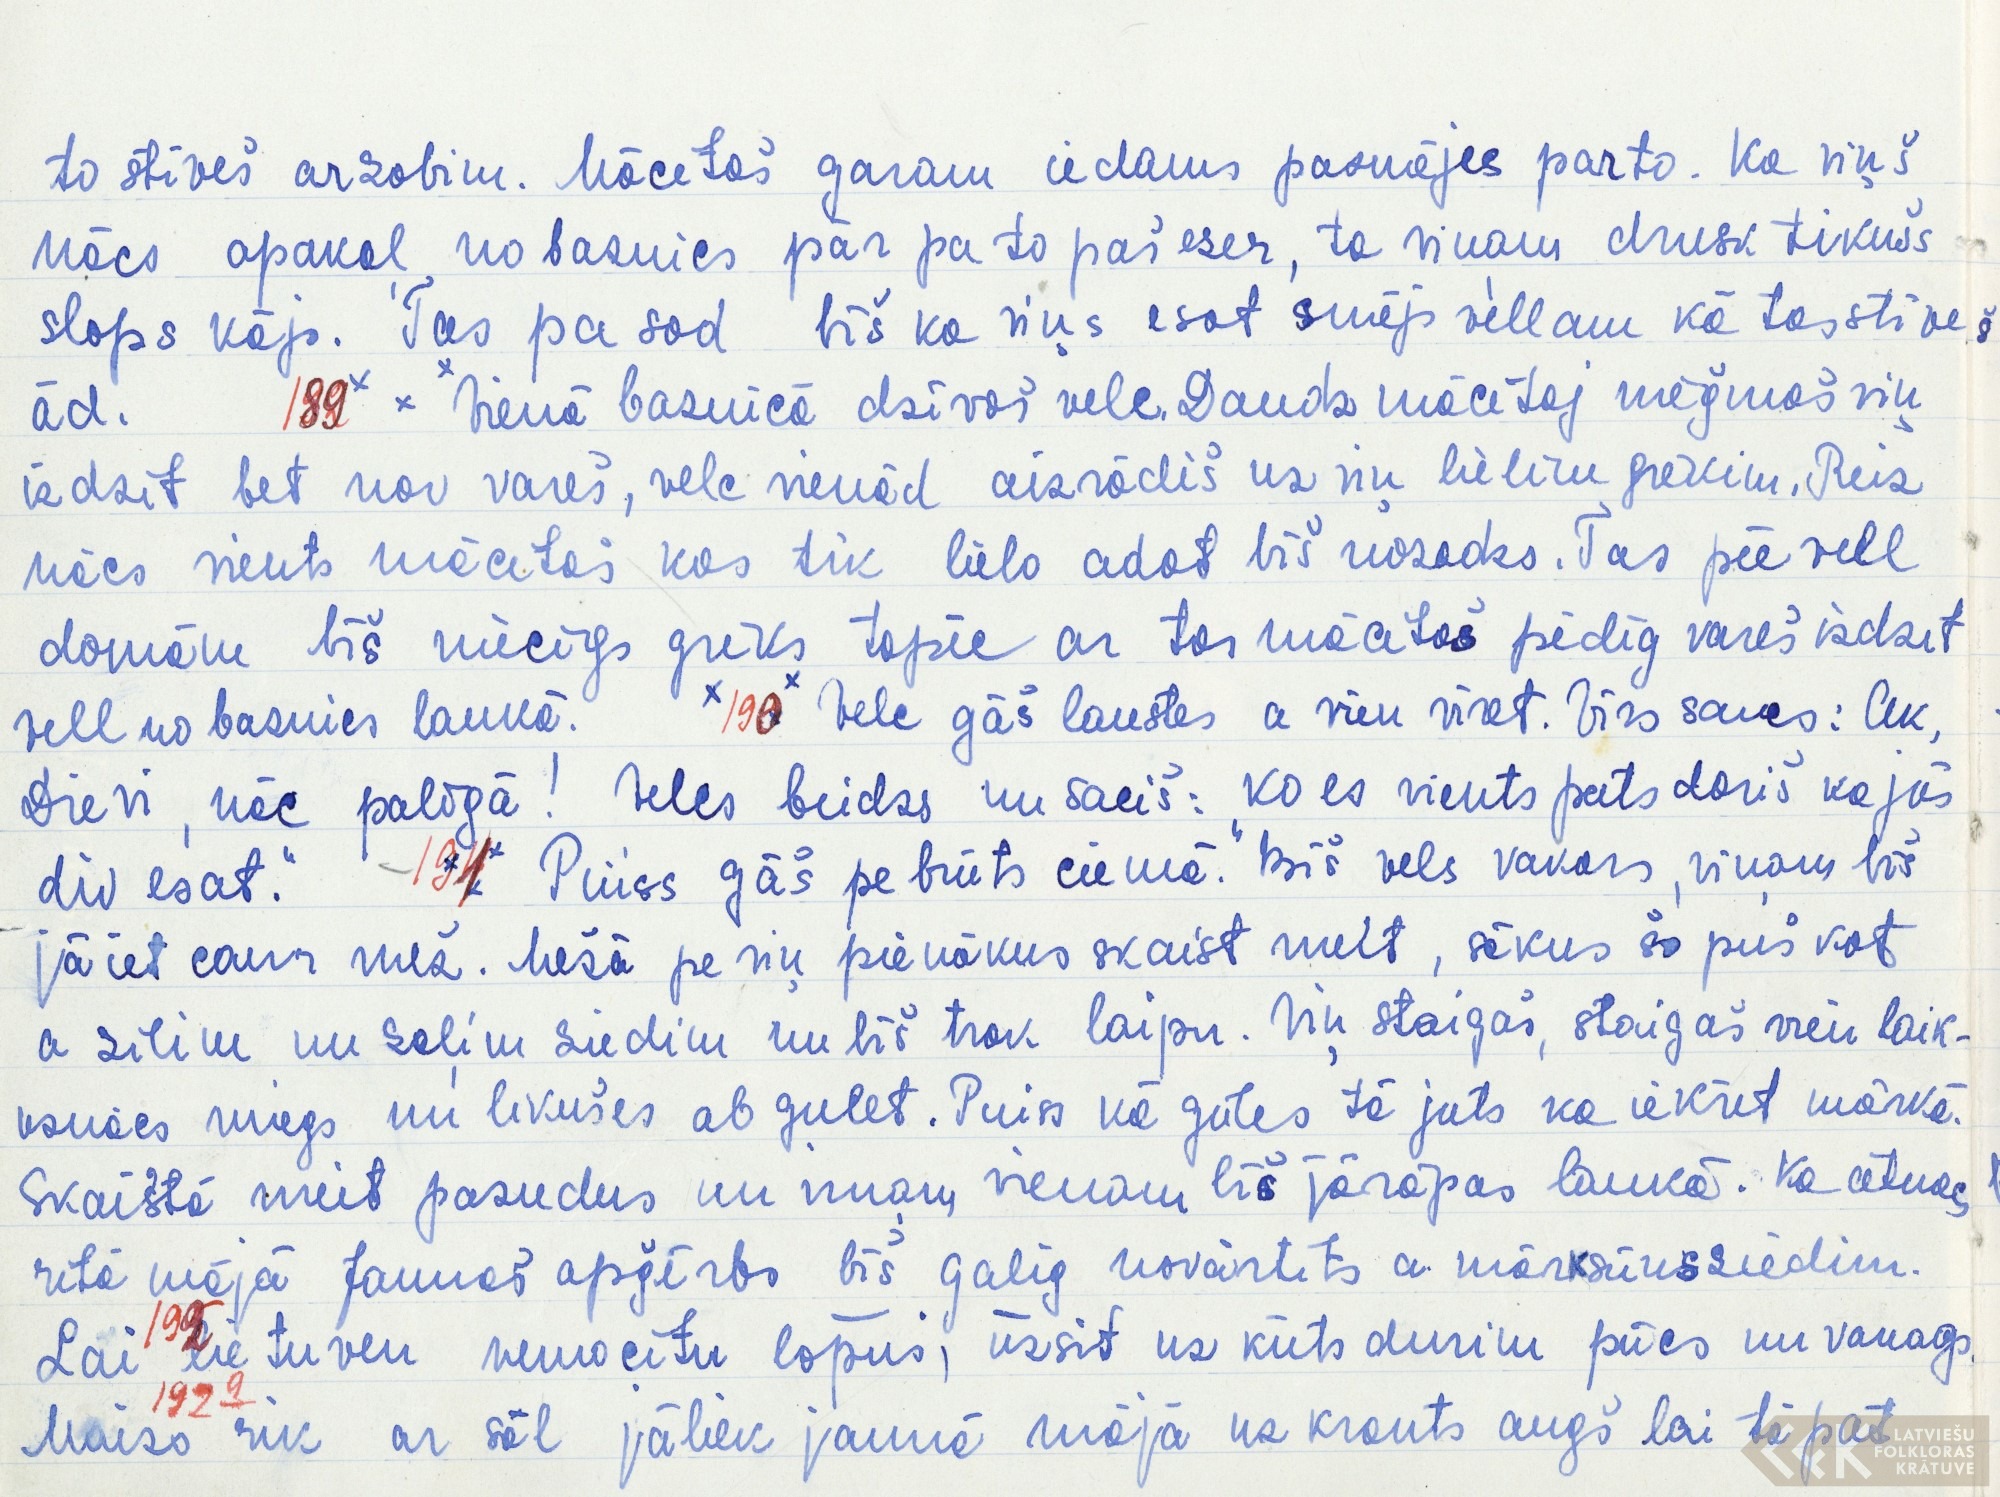 to stīveš ar zobim. Mācetaš garam iedams pasmējes par to. Ka viņš
nācs apakaļ no baznics pār pa to paš ezer, ta viņam drusk tikušs
slops kājs. Tas pa sod bīš ka viņs esot smējs vellam kā tas stīveš
ād. 189 × × Vienā baznicā dzīvoš vele. Daudz mācitaj mēģinaš viņ
izdzit bet nov vareš, vele vienād aizrādiš uz viņ lielim grēkim. Reiz
nācs vients mācetaš kas tik lielo adat bīš nozadzs. Tas pēe vell
domām bīš niecīgs grēks tapēe ar tas mācetaš pēdīg vareš izdzit
vell no baznics laukā. × 190 × Vele gāš laustes a vien viret. Virs saucs: Ak,
Dievi, nāc palōgā! Veles beidzs nu saciš: "Ko es vients pats dariš ka jūs
div esat." 191 Puiss gāš pe brūts ciemā. Bīš vels vakars, viņam bīš
jāiet caur mež. Mežā pe viņ pienākus skaist meit, sākus šo puškot
a zilim nu zaļim ziedim nu bīš trok laipn. Viņ staigaš, staigaš vien laik-
uznācs miegs nu likušes ab gulet. Puiss kā gules tā juts ka iekrīt mārkā.
Skaistā meit pazudus nu viņam vienam bīš jārāpas laukā. Ka atnācs
ritā mājā jaunaš apģērbs bīš galīg novārtits a mārksūnsziedim.
Lai 192 lietuven nemocītu lopus, ūzsit uz kūts durim pūcs nu vanags.
1929
Maizs rik ar sāl jāliek jaunā mājā uz kronts augš lai tā pat
LATVIEŠU
FOLKLORAS
KRĀTUVE